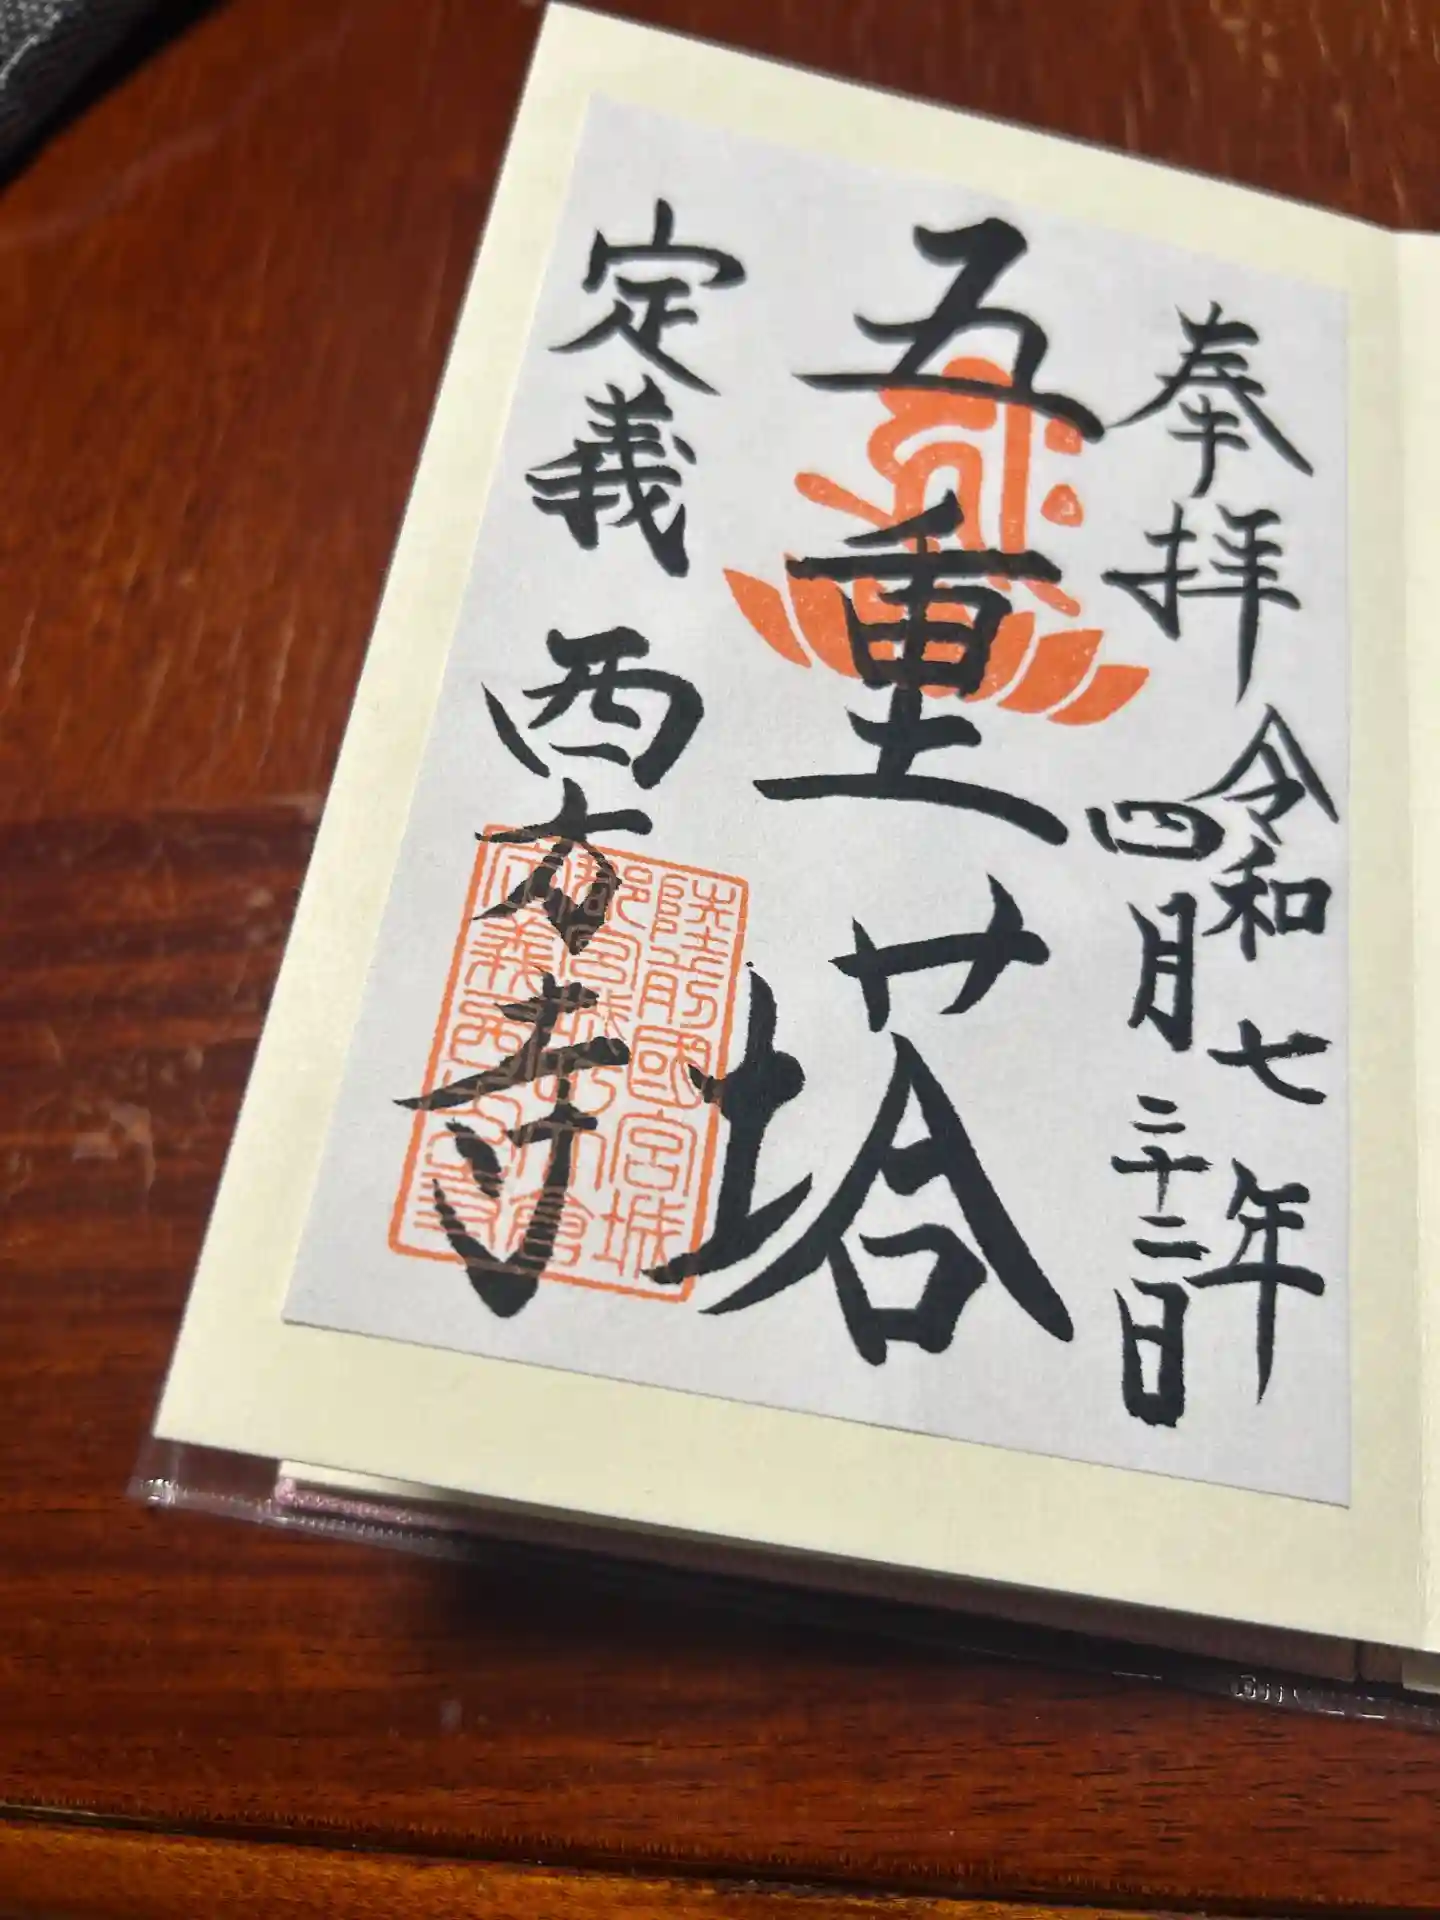 奉拝
令和七年
四月二十二日
五重塔
定義 西方寺
陸前國宮城
定義西方寺